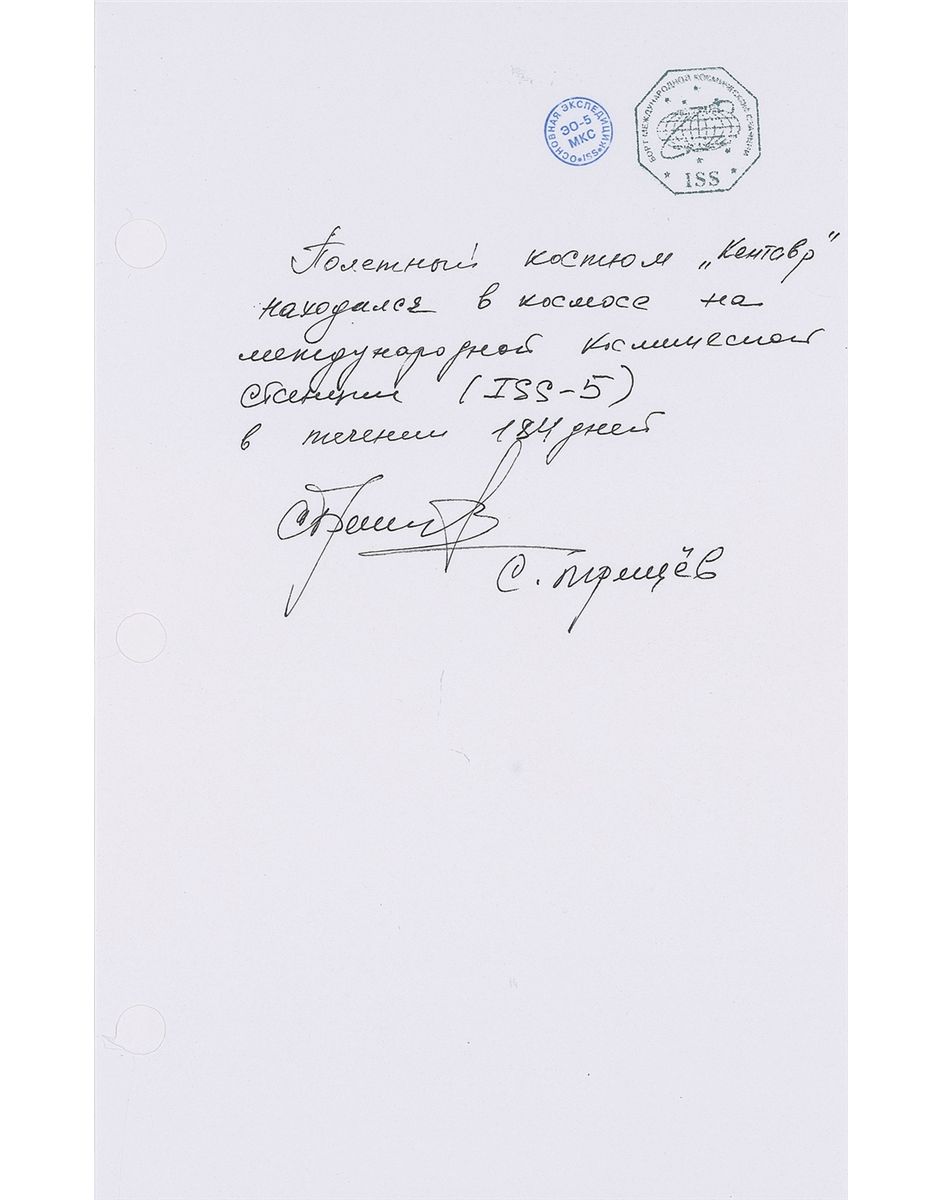 ОСНОВНАЯ ЭКСПЕДИЦИЯ
ЭО-5
МКС
ISS
БОРТ МЕЖДУНАРОДНОЙ КОСМИЧЕСКОЙ СТАНЦИИ
ISS
Полетный костюм „Кентавр"
находился в космосе на
международной космической
станции (ISS-5)
в течении 184 дней
С. Трещёв